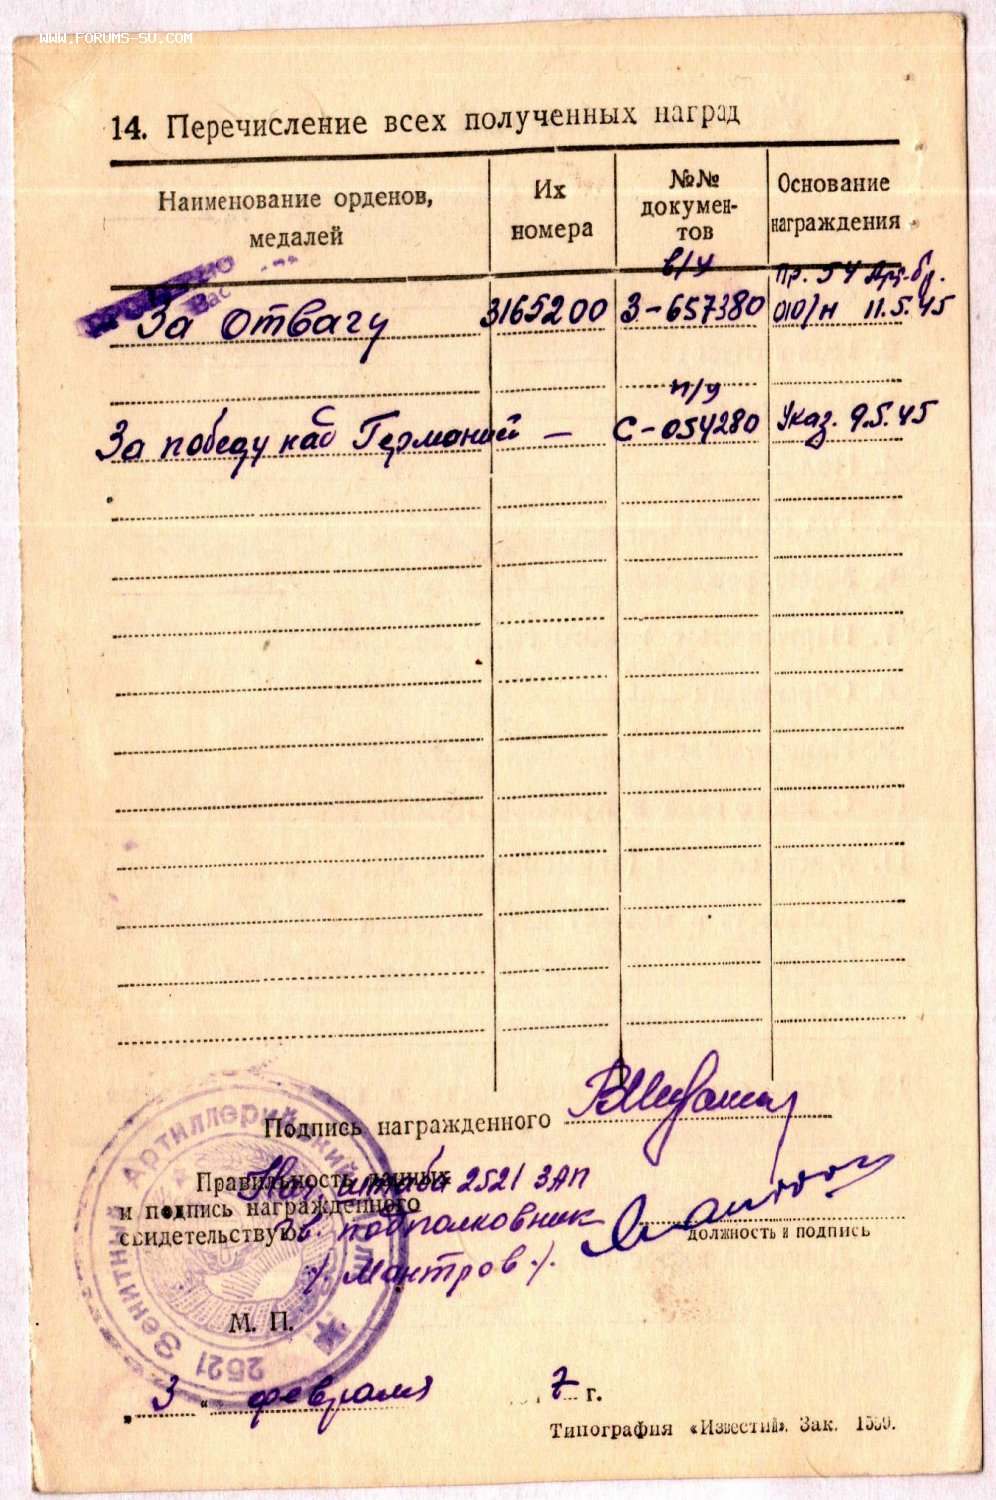 WWW.FORUMS-SU.COM
14. Перечисление всех полученных наград
Наименование орденов, медалей
Их номера
№№ докумен-
тов
Основание награждения
в/у
Пр. 54 Арт.бр.
За отвагу 3165200 З-657380 010/н 11.5.45
п/у
За победу над Германией — С-054280 Указ. 9.5.45
Подпись награжденного
Правильность данных
и подпись награжденного
свидетельствую
Нач. штаба 2521 ЗАП
Гв. подполковник
/. Мантров ./.
должность и подпись
М. П.
2521 Зенитный Артиллерийский полк
„ 3 “ февраля 7 г.
Типография «Известий». Зак. 1559.